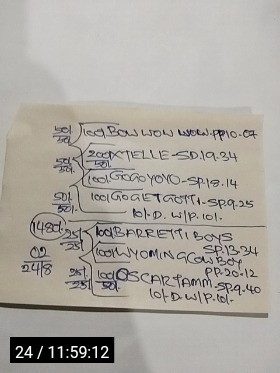 50/- 50/- 100/- BOW WOW WOW-PP10-07
50/- 50/- 200 XTELLE-SD.19-34
100/- GOGOYOYO-SP.18-14
50/- 50/- 100/- GOGETGOTTI-SP.9-25
10/-D.W/P.10/-
1480/- 25/- 25/- 100/- BARRETTI BOYS
SP.13-34
02 100/- WYOMING COWBOY
24/8 PP.20-12
25/- 25/- 100/- OSCARTAMM-SP.9-40
10/-D.W/P.10/-
24 / 11:59:12